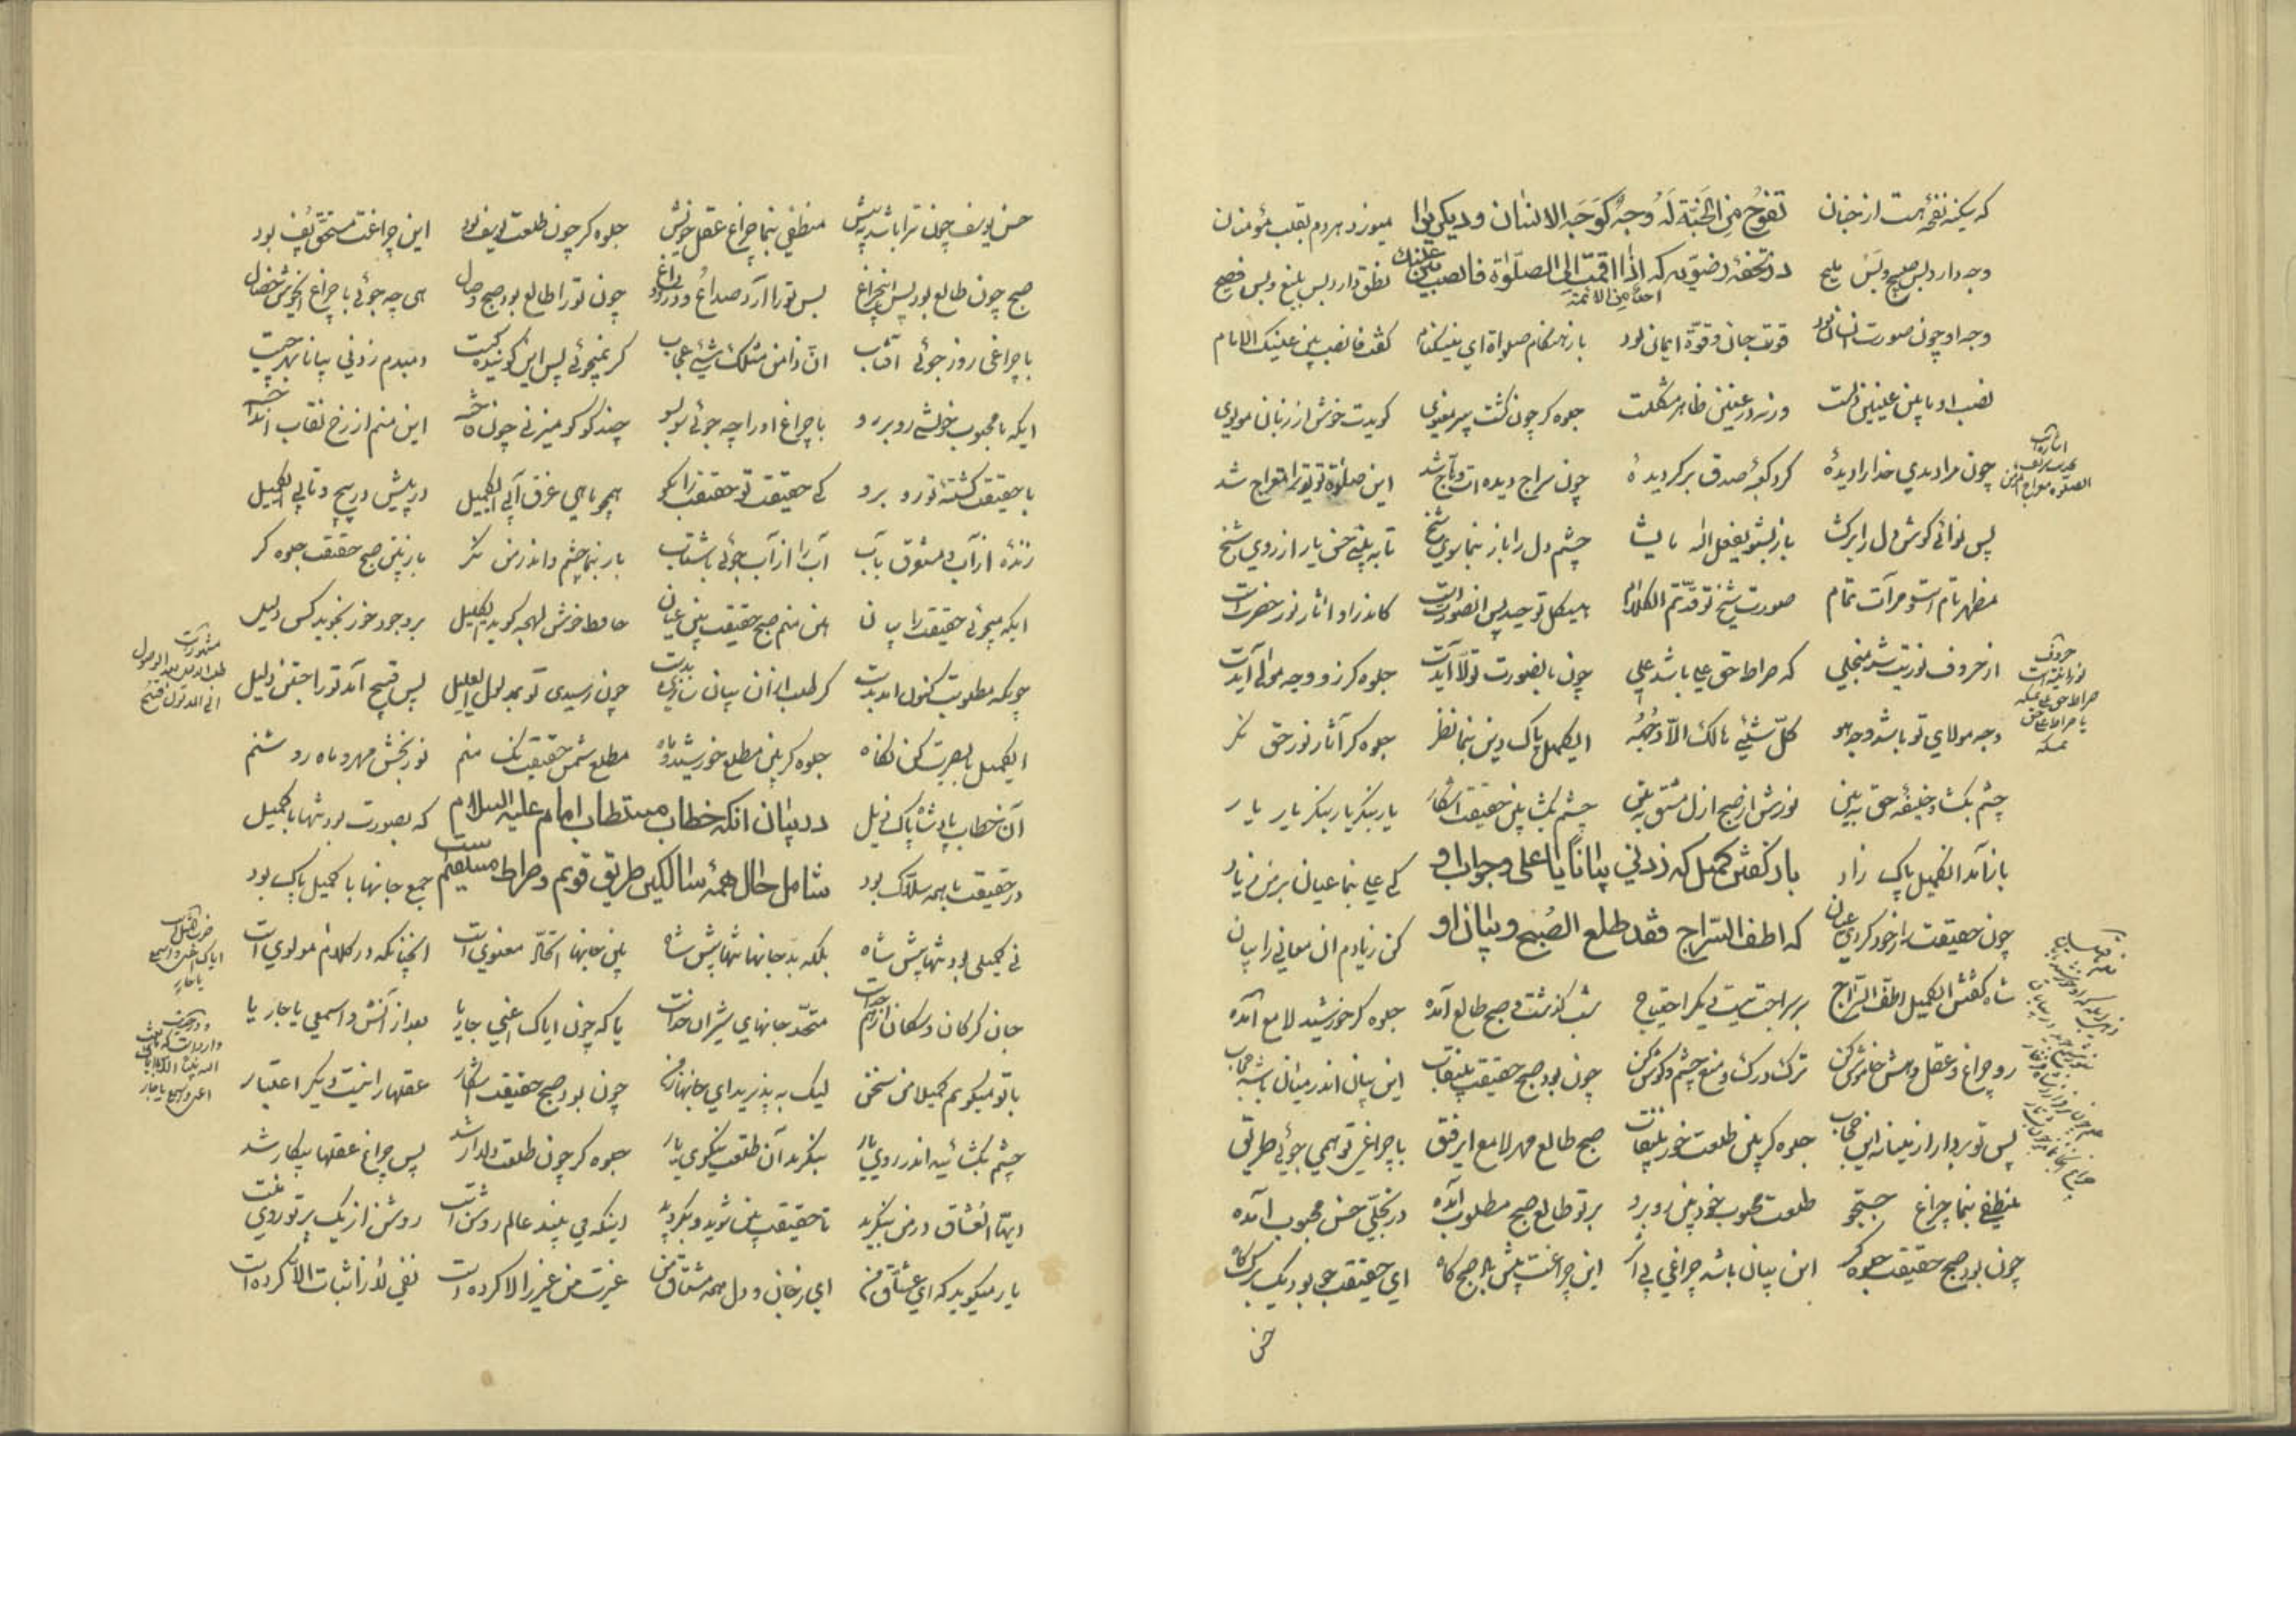 که سکینه نفحه هست از جنان تفوح من الجنة له وجه کوجه الانسان و دیکر میوزد هر دم بقلب مؤمنان
وجه دارد بس صبیح و بس ملیح در تحفهٔ رضویه که اذا اقمت الی الصلوة فانصب بین عینیک احداً من الائمة نطق دارد بس بلیغ و بس فصیح
وجه او چون صورت انسانی بود قوت جان و قوّة ایمان بود باز هنگام صلواة ای نیکنام گفت فانصب بین عینیک الامام
نصب او مابین عینین دلست ورنه در عینین ظاهر مشکلست جلوه گر چون گشت پیر معنوی گویدت خوش از زبان مولوی
چون مرا دیدی خدا را دیدهٔ گرد کعبهٔ صدق بر گردیدهٔ چون سراج دیده ات وهّاج شد این صلوة تو تو را معراج شد
پس نوائی گوش دل را برگشا باز بشنو یفعل الله ما یشا چشم دل را باز بنما سوی شیخ تا ببینی حسن یار از روی شیخ
مظهر تام است و مرآت تمام صورت شیخ تو قد تمّ الکلام هیکل توحید پس انصورت است کاندر او آثار نور حضرت است
از حروف نوریت شد منجلی که صراط حق علی باشد علی چون بانصورت تولّا آیدت جلوه گر زو وجه مولی آیدت
وجه مولای تو باشد وجه هو کلّ شیئ هالک الّا وجهه ای کمیل پاک دین بنما نظر جلوه گر آثار نور حق نگر
چشم بگشا و خلیفهٔ حق ببین نورش از صبح ازل مشرق ببین چشم بگشا بین حقیقت آشکار یار بنگر یار بنگر یار یار
باز آمد آن کمیل پاک زاد باز گفتن کمیل که زدنی بیاناً یا علی و جواب او کی علی بنما عیان بر من زیاد
چون حقیقت را ز خود کردی عیان که اطف السّراج فقد طلع الصُبح و بیان او کن زیادم آن معانی را بیان
شاه گفتش ای کمیل اطف السراج بر سراجت نیست دیگر احتیاج شب گذشت و صبح طالع آمده جلوه گر خورشید لامع آمده
رو چراغ عقل و هش خاموش کن ترک درک و منع چشم و گوش کن چون بود صبح حقیقت بینقاب این بیان اندر میان باشد حجاب
پس تو بردار از میانه این حجاب جلوه گر بین طلعت خور بینقاب صبح طالع مهر لامع ای رفیق با چراغی تو همی جوئی طریق
منطفی بنما چراغ جستجو طلعت محبوب خود بین روبرو بر تو طالع صبح مطلوب آمده در تجلّی حسن محبوب آمده
چون بود صبح حقیقت جلوه گر این بیان باشد چراغی بی اثر این چراغت پیش باد صبحگاه ای حقیقت جو بود یک برگ کاه
حسن
حسن یوسف چون ترا باشد به پیش منطفی بنما چراغ عقل خویش جلوه گر چون طلعت یوسف بود این چراغت مستحق پُف بود
صبح چون طالع بود پس این چراغ بس تو را آرد صداع و درد دماغ چون تو را طالع بود صبح وصال هی چه جوئی با چراغ ای خوش خصال
با چراغی روز جوئی آفتاب انّ ذا من مثلک شیئ عجاب گر نمیجوئی پس این گوینده کیست دمبدم زدنی بیانا بهر چیست
ایکه با محبوب خویشی روبرو با چراغ او را چه جوئی سو بسو چند کو کو میزنی چون فاخته این منم از رخ نقاب انداخته
با حقیقت گشتهٔ تو رو برو کی حقیقت تو حقیقت را بگو همچو ماهی غرق آبی ای کمیل در پیش در پیچ و تابی ای کمیل
زندهٔ از آب و معشوق بآب آب را از آب جوئی باشتاب باز بنما چشم و اندر من نگر باز بین صبح حقیقت جلوه گر
ایکه میجوئی حقیقت را بیان این منم صبح حقیقت بین عیان حافظ خوش لهجه گوید ای کمیل بر وجود خور نجوید کس دلیل
چونکه مطلوبت کنون آمد بدست گر طلب از آن بیان سازی بدست چون رسیدی تو بمدلول ای علیل پس قبیح آمد تو را جستن دلیل
ای کمیل با بصیرت کن نگاه جلوه گر بین مطلع خورشید و ماه مطلع شمس حقیقت نک منم نور بخش مهر و ماه روشنم
آن خطاب پادشاه پاک ذیل در بیان آنکه خطاب مستطاب امام علیه السلام که بصورت بود تنها با کمیل
در حقیقت با همه سلّاک بود شامل حال همهٔ سالکین طریق قویم و صراط مستقیم است جمع جانها با کمیل پاک بود
نی کمیلی بود تنها پیش شاه بلکه بد جانها تنها پیش شاه بین جانها اتحاد معنویست آنچنانکه در کلام مولویست
جان گرگان و سگان از هم جداست متحد جانهای شیران خداست یا که چون ایاک اعنی جاریا بعد از آتش و اسمعی یا جار یا
با تو میگویم کمیلا من سخن لیک بپذیرید ای جانها ز من چون بود صبح حقیقت آشکار عقلها را نیست دیگر اعتبار
چشم بگشائید اندر روی یار بنگرید آن طلعت نیکوی یار جلوه گر چون طلعت دلدار شد پس چراغ عقلها بیکار شد
ایها العُشاق در من بنگرید تا حقیقت بین شوید و بگروید اینکه می بینید عالم روشن است روشن از یک پرتو روی منست
یار میگوید که ای عشاق من ای ز جان و دل همه مشتاق من غیرت من غیر را لا کرده است نفی لا را ثبات الّا کرده است